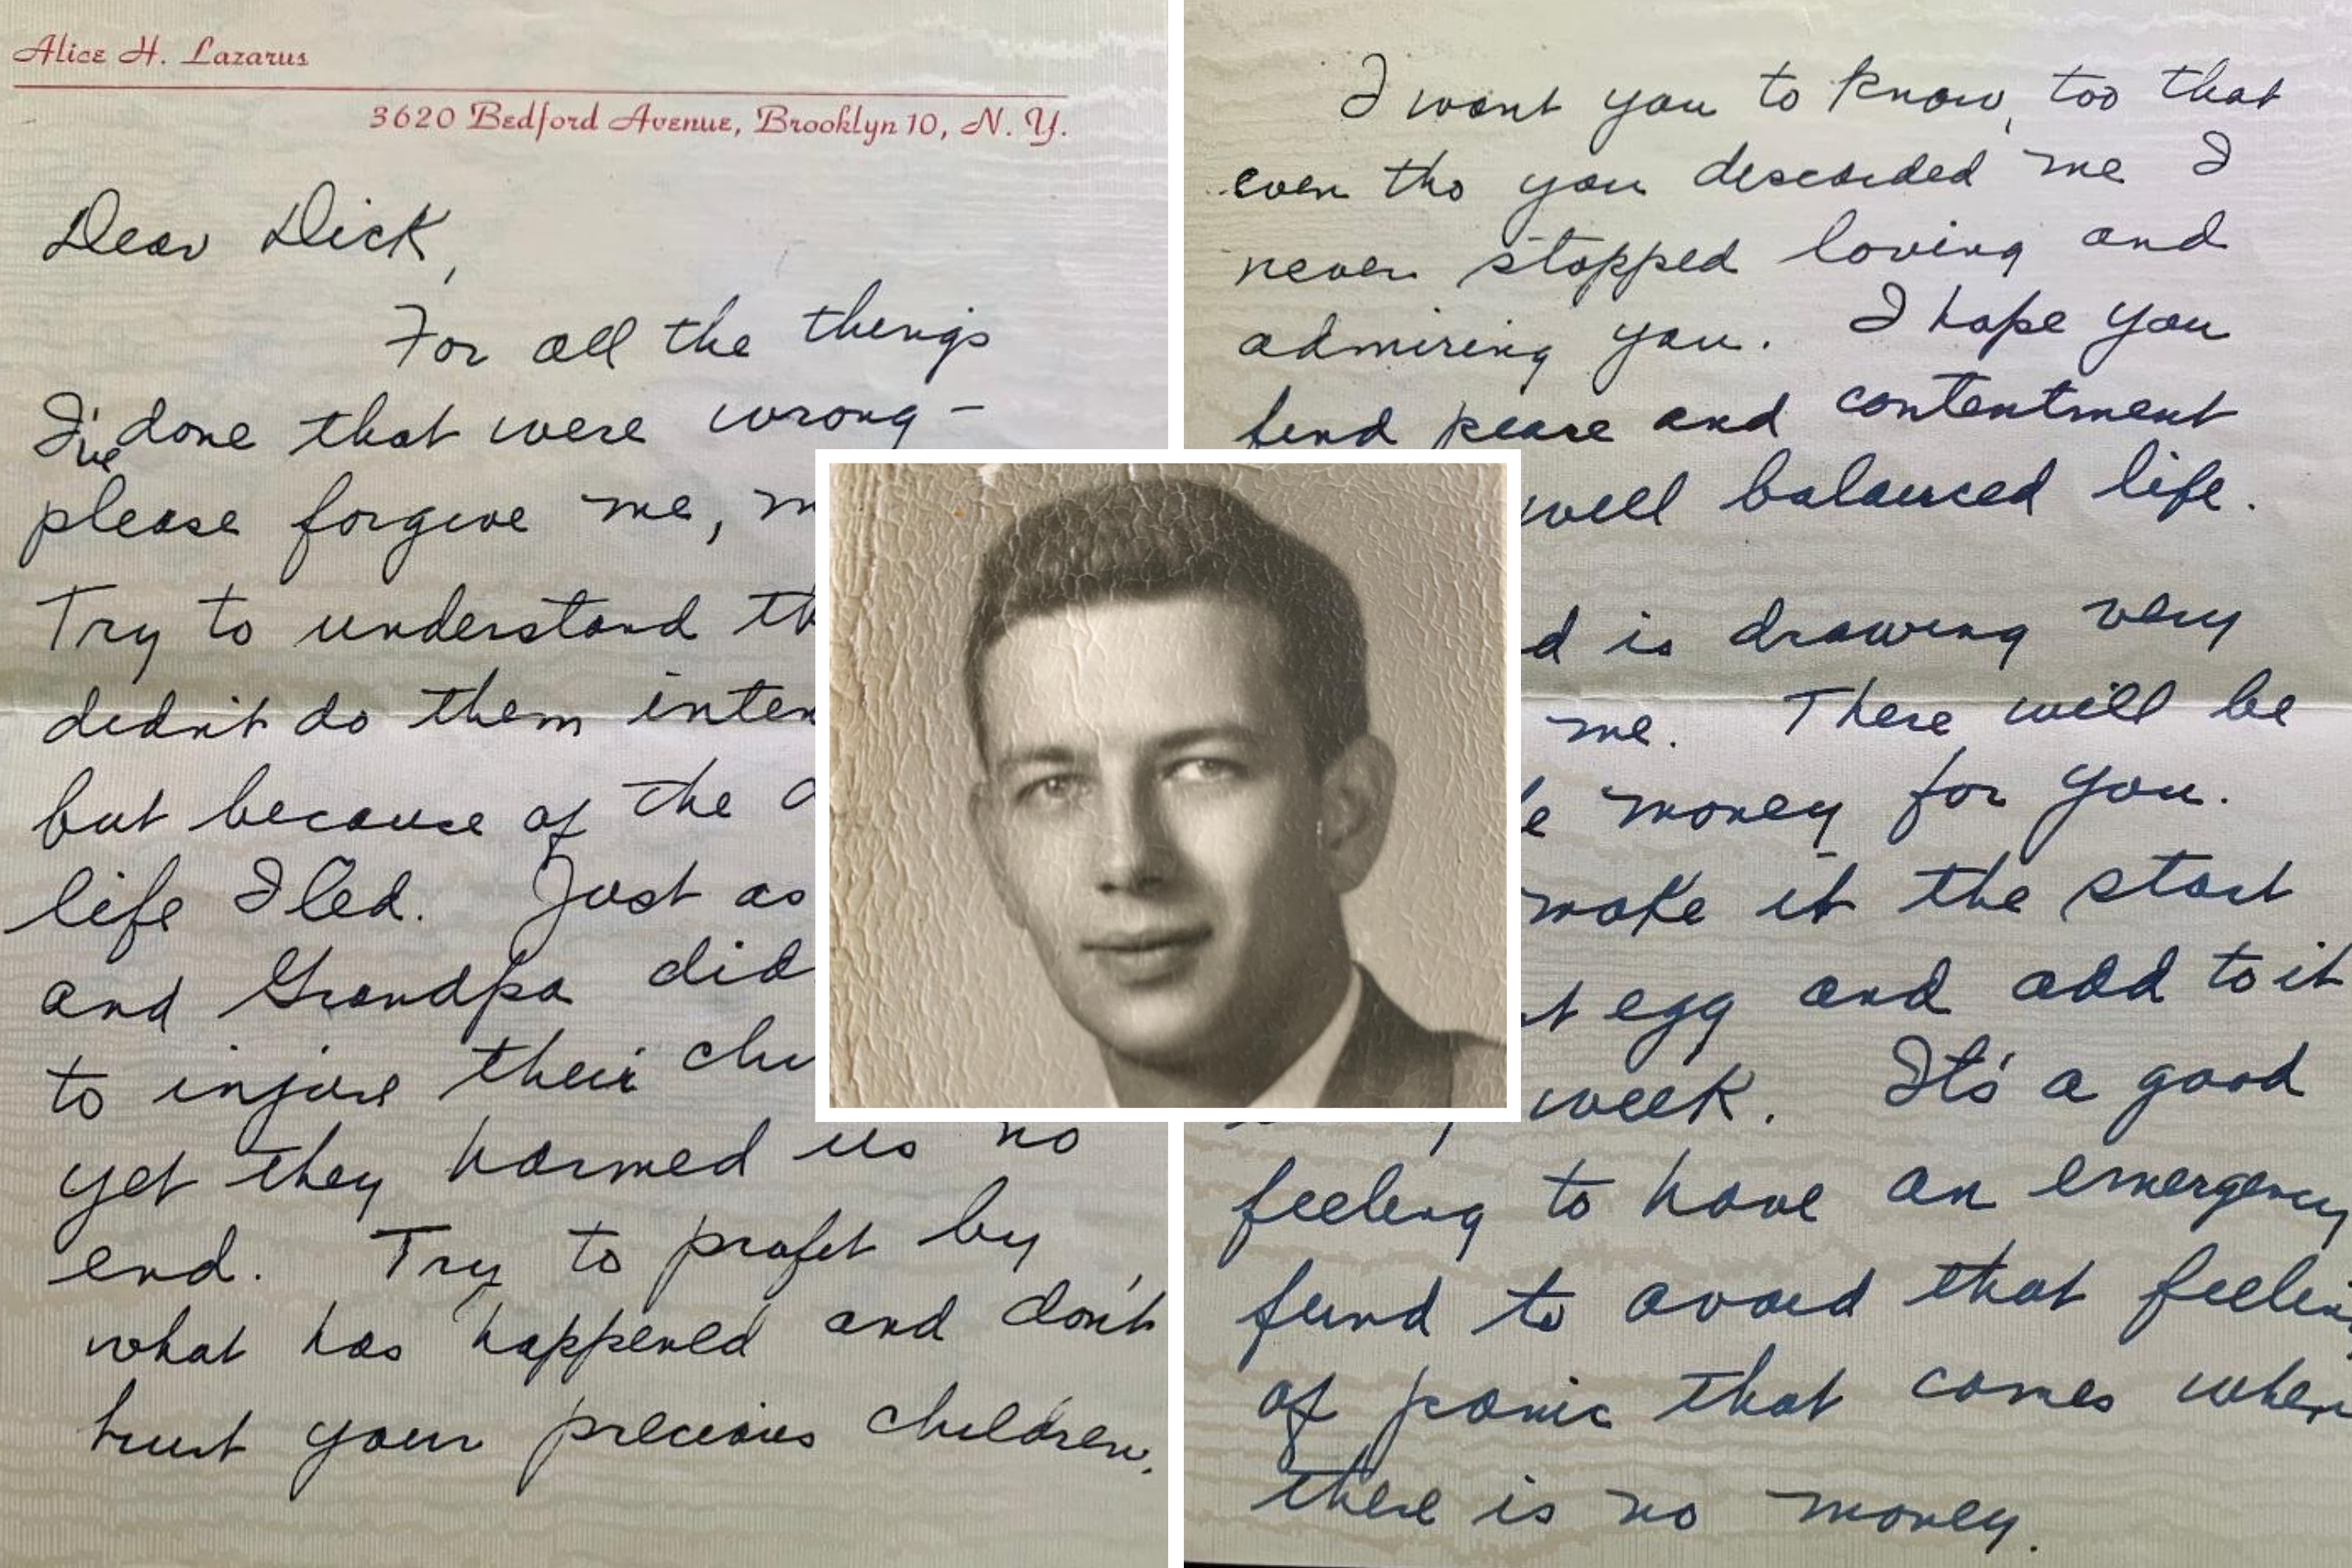 Alice H. Lazarus
3620 Bedford Avenue, Brooklyn 10, N. Y.
Dear Dick,
For all the things
I've done that were wrong –
please forgive me,
Try to understand
didn't do them
but because of the
life I led. Just as
and Grandpa did
to injure their
yet they harmed us no
end. Try to profit by
what has happened and don't
hurt your precious children.
I want you to know, too that
even tho you descarded me I
never stopped loving and
admiring you. I hope you
find peace and contentment
well balanced life.
is drawing very
me. There will be
money for you.
make it the start
egg and add to it
week. It's a good
feeling to have an emergency
fund to avoid that feeling
of panic that comes when
there is no money.